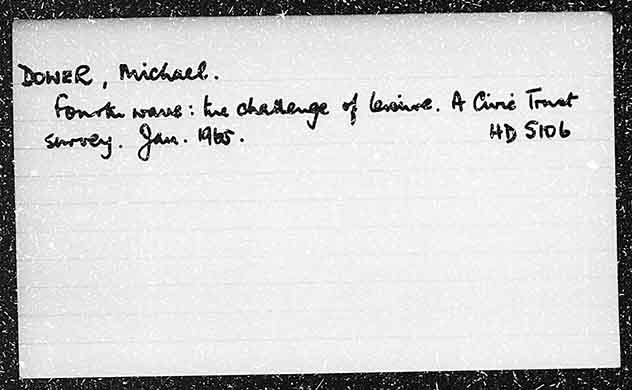 DOWER, Michael.
Fourth wave: the challenge of leisure. A Civic Trust
survey. Jan. 1965. HD 5106